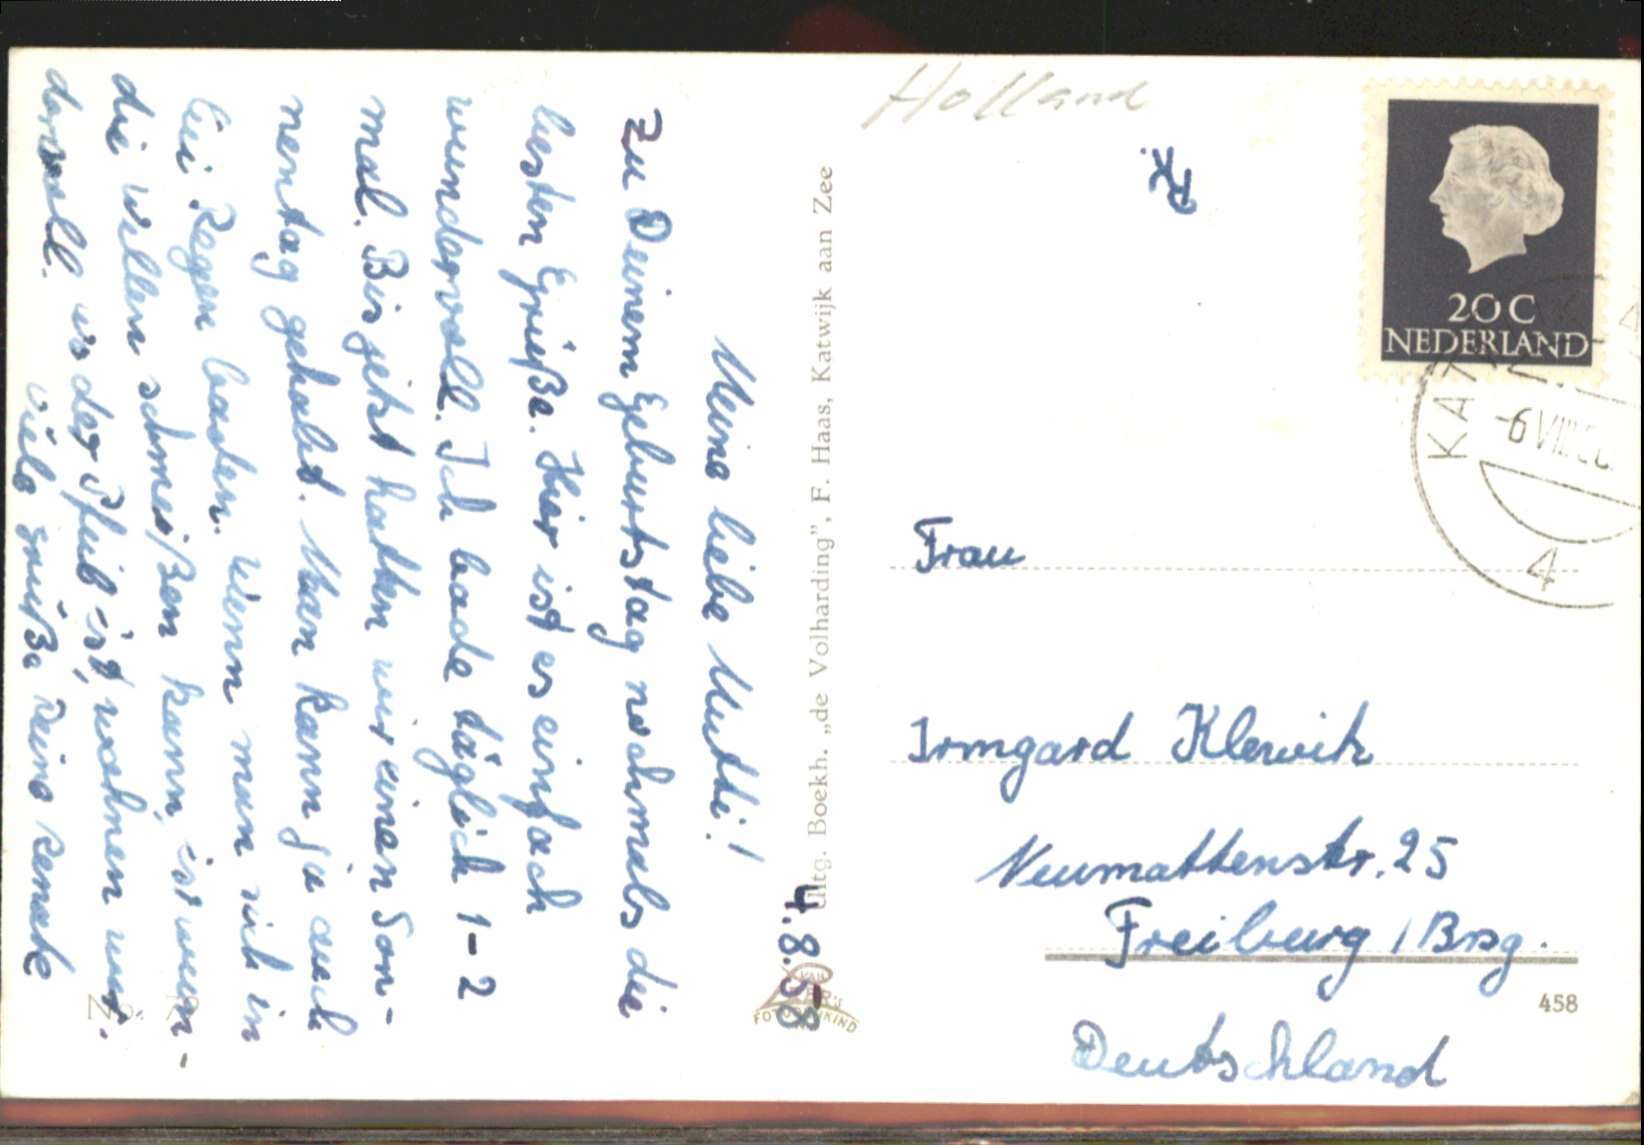 Holland
P.K.
20 C
NEDERLAND
KAT
-6 VIII
4
4.8.58
Meine liebe Mutti!
Zu Deinem Geburtstag nochmals die
besten Grüße. Hier ist es einfach
wundervoll. Ich bade täglich 1-2
mal. Bis jetzt hatten wir einen Son-
nentag gehabt. Man kann ja auch
bei Regen baden. Wenn man sich in
die Wellen schmeißen kann, ist wun-
dervoll. wo der ist, wohnen wir.
viele Grüße Deine Renate
Uitg. Boekh. „de Volharding", F. Haas, Katwijk aan Zee
Frau
Irmgard Klewitz
Neumattenstr. 25
Freiburg / Brsg.
Deutschland
458
No. 7